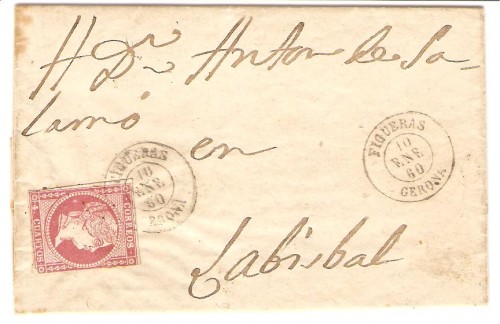 A Dn. Anton de Sa-
lamó en
Labisbal
FIGUERAS
10
ENE
60
GERONA
FIGUERAS
10
ENE
60
GERONA
CORREOS
4 CUARTOS